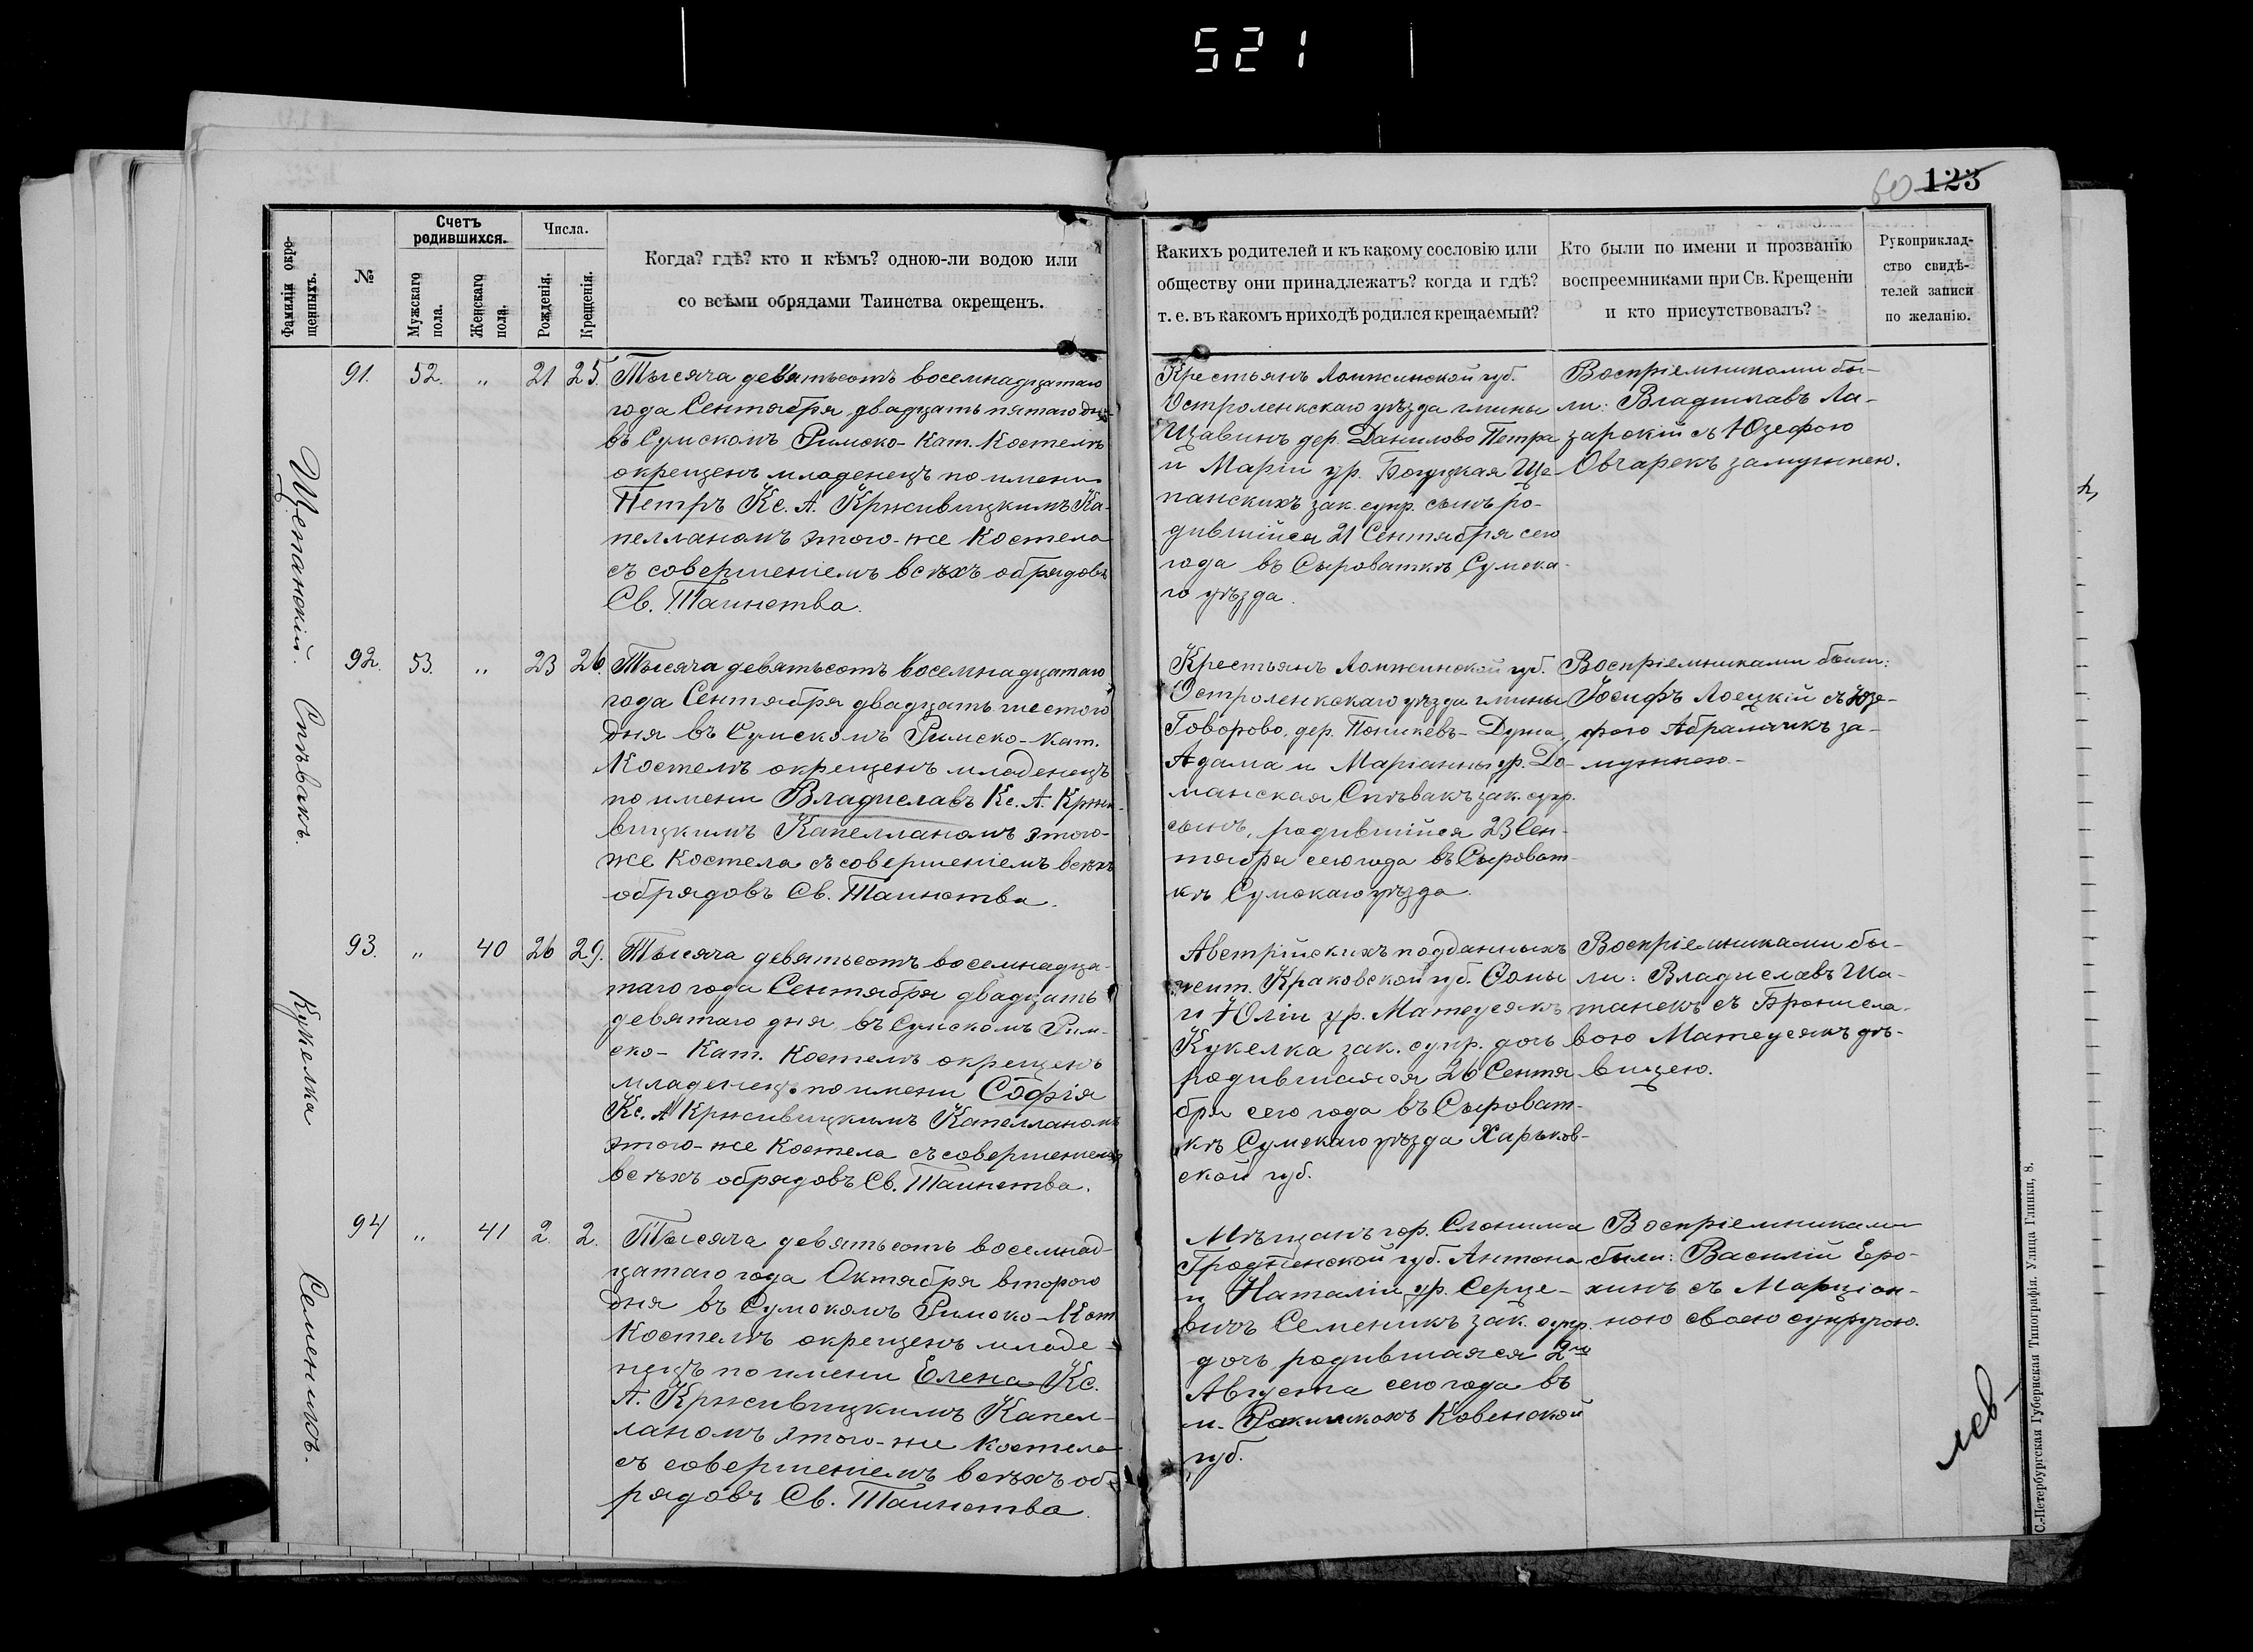 521
60 123
Фамиліи окре-
щенныхъ.
№
Счетъ
родившихся.
Мужскаго
пола.
Женскаго
пола.
Числа.
Рожденія.
Крещенія.
Когда? гдѣ? кто и кѣмъ? одною-ли водою или
со всѣми обрядами Таинства окрещенъ.
Какихъ родителей и къ какому сословію или
обществу они принадлежатъ? когда и гдѣ?
т. е. въ какомъ приходѣ родился крещаемый?
Кто были по имени и прозванію
воспреемниками при Св. Крещеніи
и кто присутствовалъ?
Рукоприклад-
ство свидѣ-
телей записи
по желанію.
Щепанскій.
91. 52. " 21 25.
Тысяча девятьсотъ восемнадцатаго
года Сентября двадцать пятаго дня
въ Сумскомъ Римско-Кат. Костелѣ
окрещенъ младенецъ по имени
Петръ Кс. А. Крживицкимъ Ка-
пелланомъ этого-же Костела
съ совершеніемъ всѣхъ обрядовъ
Св. Таинства.
Крестьянъ Ломжинской губ.
Остроленкскаго уѣзда гмины
Щавинъ дер. Данилово Петра
и Маріи ур. Богуцкая Ще-
панскихъ зак. супр. сынъ ро-
дившійся 21 Сентября сего
года въ Сыроваткѣ Сумска-
го уѣзда.
Воспріемниками бы-
ли: Владиславъ Ла-
зарскій съ Юзефою
Овчарекъ замужнею.
Спѣвакъ.
92. 53. " 23 26.
Тысяча девятьсотъ восемнадцатаго
года Сентября двадцать шестого
дня въ Сумскомъ Римско-Кат.
Костелѣ окрещенъ младенецъ
по имени Владиславъ Кс. А. Кржи-
вицкимъ Капелланомъ этого-
же Костела съ совершеніемъ всѣхъ
обрядовъ Св. Таинства.
Крестьянъ Ломжинской губ.
Остроленкскаго уѣзда гмины
Говорово, дер. Поникевъ-Дужа
Адама и Маріанны ур. До-
манская Спѣвакъ зак. супр.
сынъ, родившійся 23 Сен-
тября сего года въ Сыроват-
кѣ Сумскаго уѣзда.
Воспріемниками были:
Іосифъ Лоецкій съ Юзе-
фою Абрамчикъ за-
мужнею.
Кукелка
93. " 40 26 29.
Тысяча девятьсотъ восемнадца-
таго года Сентября двадцать
девятаго дня въ Сумскомъ Рим-
ско-Кат. Костелѣ окрещенъ
младенецъ по имени Софія
Кс. А Крживицкимъ Капелланомъ
этого-же Костела съ совершеніемъ
всѣхъ обрядовъ Св. Таинства.
Австрійскихъ подданныхъ
жит. Краковской губ. Ѳомы
и Юліи ур. Матеусякъ
Кукелка зак. супр. дочь
родившаяся 26 Сентя
бря сего года въ Сыроват-
кѣ Сумскаго уѣзда Харьков-
ской губ.
Воспріемниками бы-
ли: Владиславъ Ша-
танекъ съ Бронисла-
вою Матеусякъ дѣ-
вицею.
Семеникъ.
94 " 41 2. 2.
Тысяча девятьсотъ восемнад-
цатаго года Октября второго
дня въ Сумскомъ Римско-Кат
Костелѣ окрещенъ младе-
нецъ по имени Елена Кс.
А. Крживицкимъ Капел-
ланомъ этого-же Костела
съ совершеніемъ всѣхъ об-
рядовъ Св. Таинства.
Мѣщанъ гор. Слонима
Гродненской губ. Антона
и Наталіи ур. Серце-
вичъ Семеникъ зак. супр.
дочь родившаяся 2го
Августа сего года въ
м. Ракишкахъ Ковенской
губ.
Воспріемниками
были: Василій Еро-
хинъ съ Марціон-
ною своею супругою.
лев-
С.-Петербургская Губернская Типографія. Улица Глинки, 8.